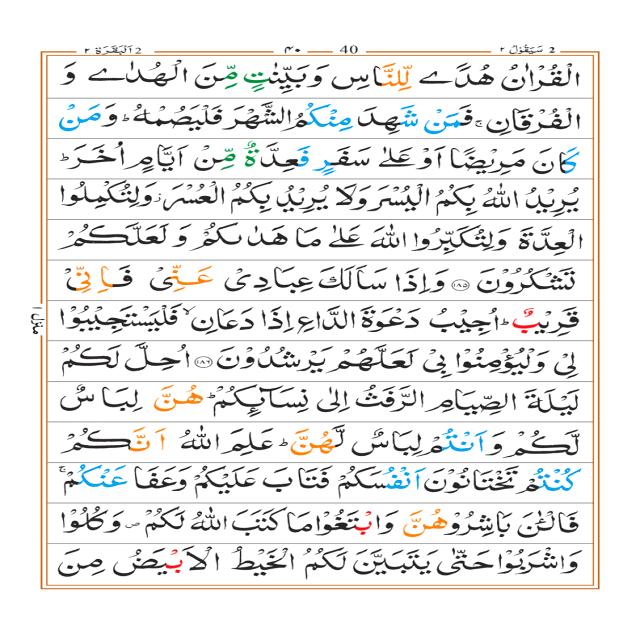 2 سَيَقُوْلُ ٢ 40 ۴۰ 2 اَلْبَقَرَة ٢
الْقُرْاٰنُ هُدًى لِّلنَّاسِ وَبَيِّنٰتٍ مِّنَ الْهُدٰى وَ
الْفُرْقَانِ ۚ فَمَنْ شَهِدَ مِنْكُمُ الشَّهْرَ فَلْيَصُمْهُ ؕ وَمَنْ
كَانَ مَرِيْضًا اَوْ عَلٰى سَفَرٍ فَعِدَّةٌ مِّنْ اَيَّامٍ اُخَرَ ؕ
يُرِيْدُ اللّٰهُ بِكُمُ الْيُسْرَ وَلَا يُرِيْدُ بِكُمُ الْعُسْرَ ؗ وَلِتُكْمِلُوا
الْعِدَّةَ وَلِتُكَبِّرُوا اللّٰهَ عَلٰى مَا هَدٰىكُمْ وَ لَعَلَّكُمْ
تَشْكُرُوْنَ ‏﴿۱۸۵﴾‏ وَاِذَا سَاَلَكَ عِبَادِىْ عَنِّىْ فَاِنِّىْ
قَرِيْبٌ ؕ اُجِيْبُ دَعْوَةَ الدَّاعِ اِذَا دَعَانِ ۙ فَلْيَسْتَجِيْبُوْا
لِىْ وَلْيُؤْمِنُوْا بِىْ لَعَلَّهُمْ يَرْشُدُوْنَ ‏﴿۱۸۶﴾‏ اُحِلَّ لَكُمْ
لَيْلَةَ الصِّيَامِ الرَّفَثُ اِلٰى نِسَآٮِٕكُمْ ؕ هُنَّ لِبَاسٌ
لَّكُمْ وَاَنْتُمْ لِبَاسٌ لَّهُنَّ ؕ عَلِمَ اللّٰهُ اَنَّكُمْ
كُنْتُمْ تَخْتَانُوْنَ اَنْفُسَكُمْ فَتَابَ عَلَيْكُمْ وَعَفَا عَنْكُمْ ۚ
فَالْـــٰٔنَ بَاشِرُوْهُنَّ وَابْتَغُوْا مَا كَتَبَ اللّٰهُ لَكُمْ ۖ وَكُلُوْا
وَاشْرَبُوْا حَتّٰى يَتَبَيَّنَ لَكُمُ الْخَيْطُ الْاَبْيَضُ مِنَ
منزل ١